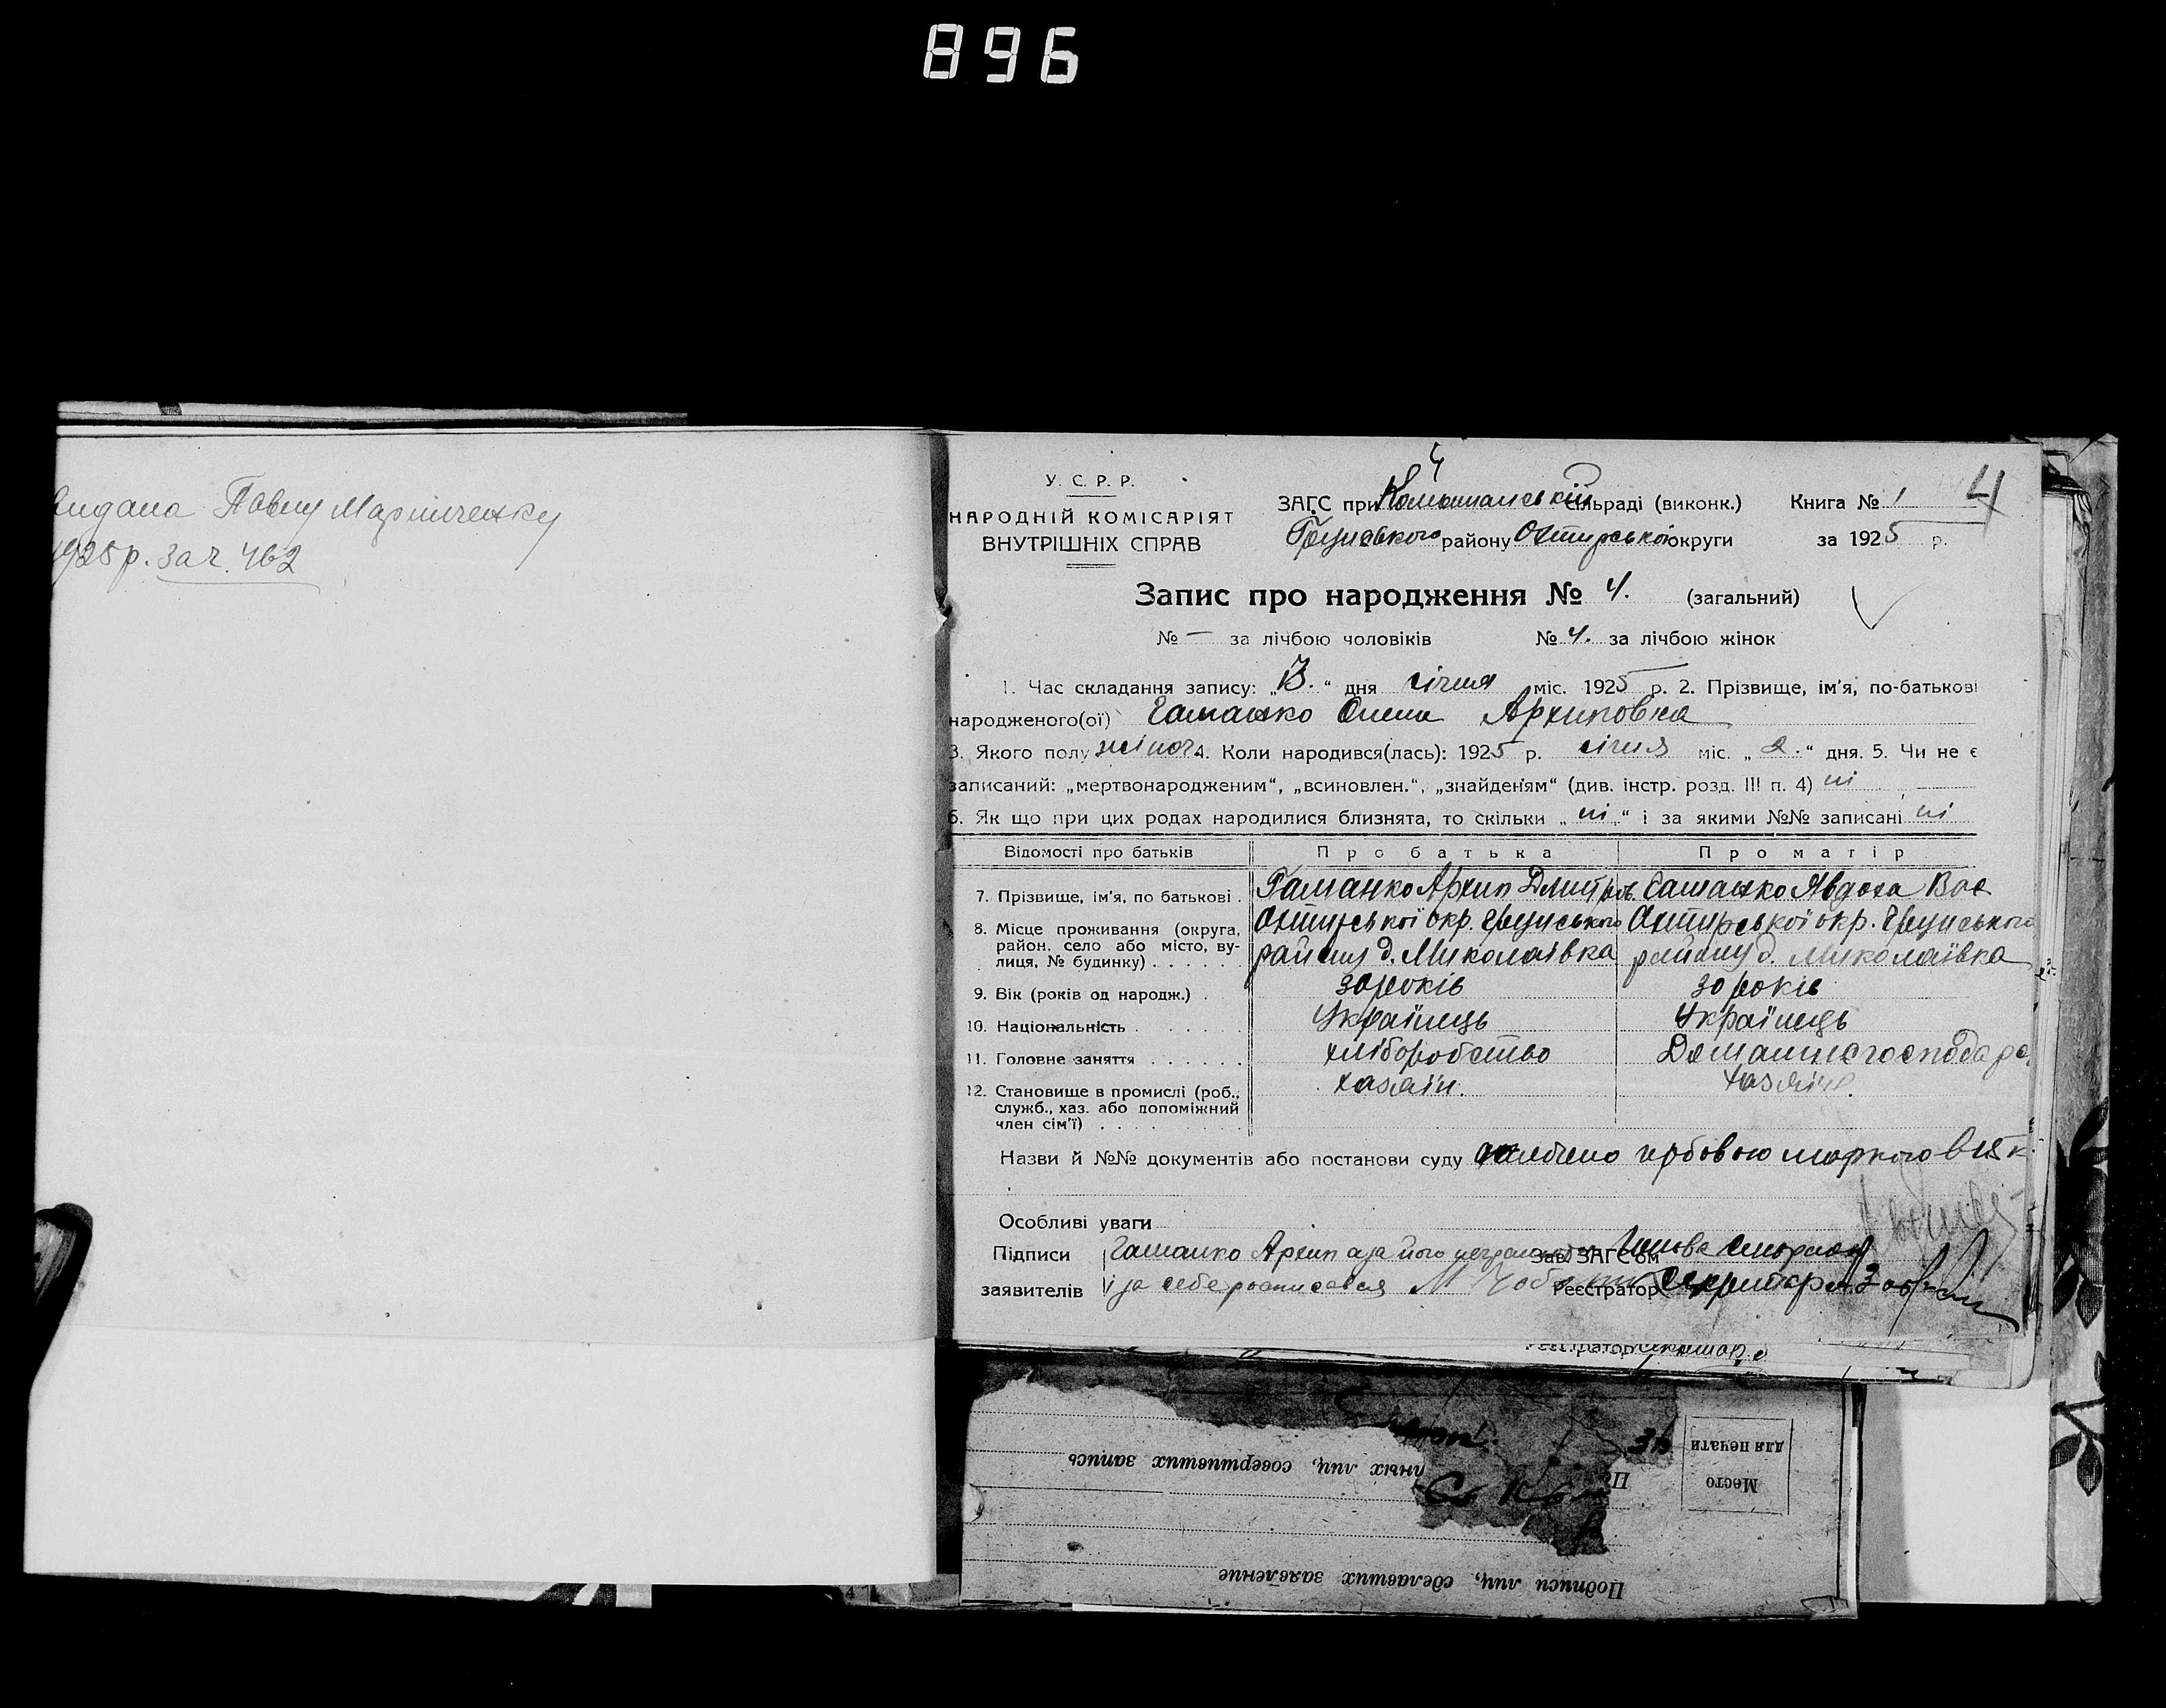 896
Видана Павлу Марниченку
1925 р. за ч. 462
У. С. Р. Р.
НАРОДНІЙ КОМІСАРІЯТ
ВНУТРІШНІХ СПРАВ
4
ЗАГС при Комишанській сільраді (виконк.) Книга № 1 4
Грунського району Охтирської округи за 1925 р.
Запис про народження № 4. (загальний)
№ — за лічбою чоловіків № 4. за лічбою жінок
1. Час складання запису: „13.“ дня січня міс. 1925 р. 2. Прізвище, ім’я, по-батькові
народженого(ої) Гаманко Олена Архиповна
3. Якого полу жіноч 4. Коли народився(лась): 1925 р. січня міс. „2.“ дня. 5. Чи не є
записаний: „мертвонародженим“, „всиновлен.“, „знайденям“ (див. інстр. розд. III п. 4) ні
6. Як що при цих родах народилися близнята, то скільки „ні“ і за якими №№ записані ні
Відомості про батьків Про батька Про матір
7. Прізвище, ім’я, по батькові . Гаманко Архип Дмитров. Гаманко Явдоха Вас
8. Місце проживання (округа, Охтирської окр. Грунського Охтирської окр. Грунського
район, село або місто, ву-
лиця, № будинку) . . . . . району д. Миколаївка району д. Миколаївка
9. Вік (років од народж.) . 30 років 30 років
10. Національність . . . . . . Українець Українець
11. Головне заняття . . . . . . хліборобство Домашнє господар
12. Становище в промислі (роб., хазяїн. хазяїн.
служб., хаз. або допоміжний
член сім’ї) . . . . . . .
Назви й №№ документів або постанови суду оплочено гербовою маркою в 15 к.
Особливі уваги
Підписи Гаманко Архип а за його Зав. ЗАГС’ом
заявителів і за себе росписався М Реєстратор Секритар
Реєстратор
Место
для печати
лиц, совершивших запись
Подписи лиц, сделавших заявление